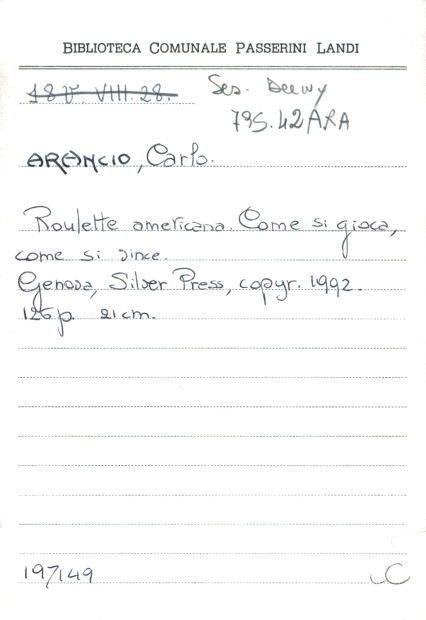 BIBLIOTECA COMUNALE PASSERINI LANDI
18V. VIII. 28.
Ses. Deewy
795.42ARA
ARANCIO, Carlo.
Roulette americana. Come si gioca,
come si vince.
Genova, Silver Press, copyr. 1992.
126 p. 21 cm.
197149
C